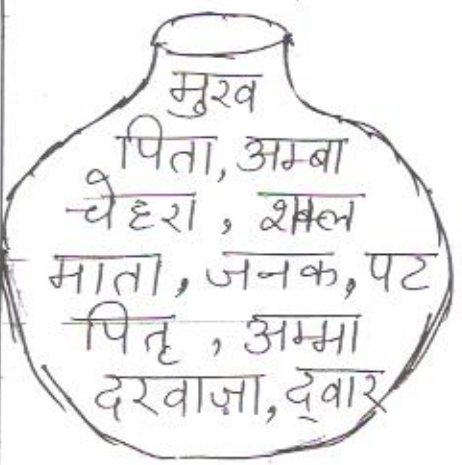 मुख
पिता, अम्बा
चेहरा, शक्ल
माता, जनक, पट
पितृ, अम्मा
दरवाज़ा, द्वार